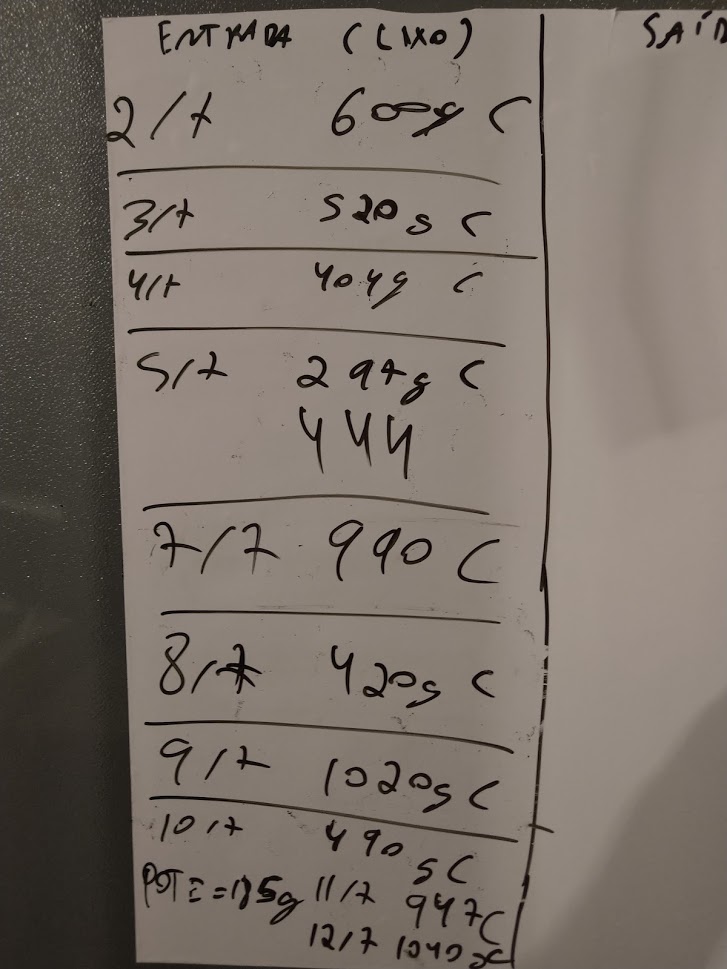 ENTRADA (LIXO)
SAÍD
2/7 600g C
3/7 520g C
4/7 404g C
5/7 297g C
444
7/7 990 C
8/7 420g C
9/7 1020g C
10/7 490 g C
POTE = 175g 11/7 947 C
12/7 1040 C